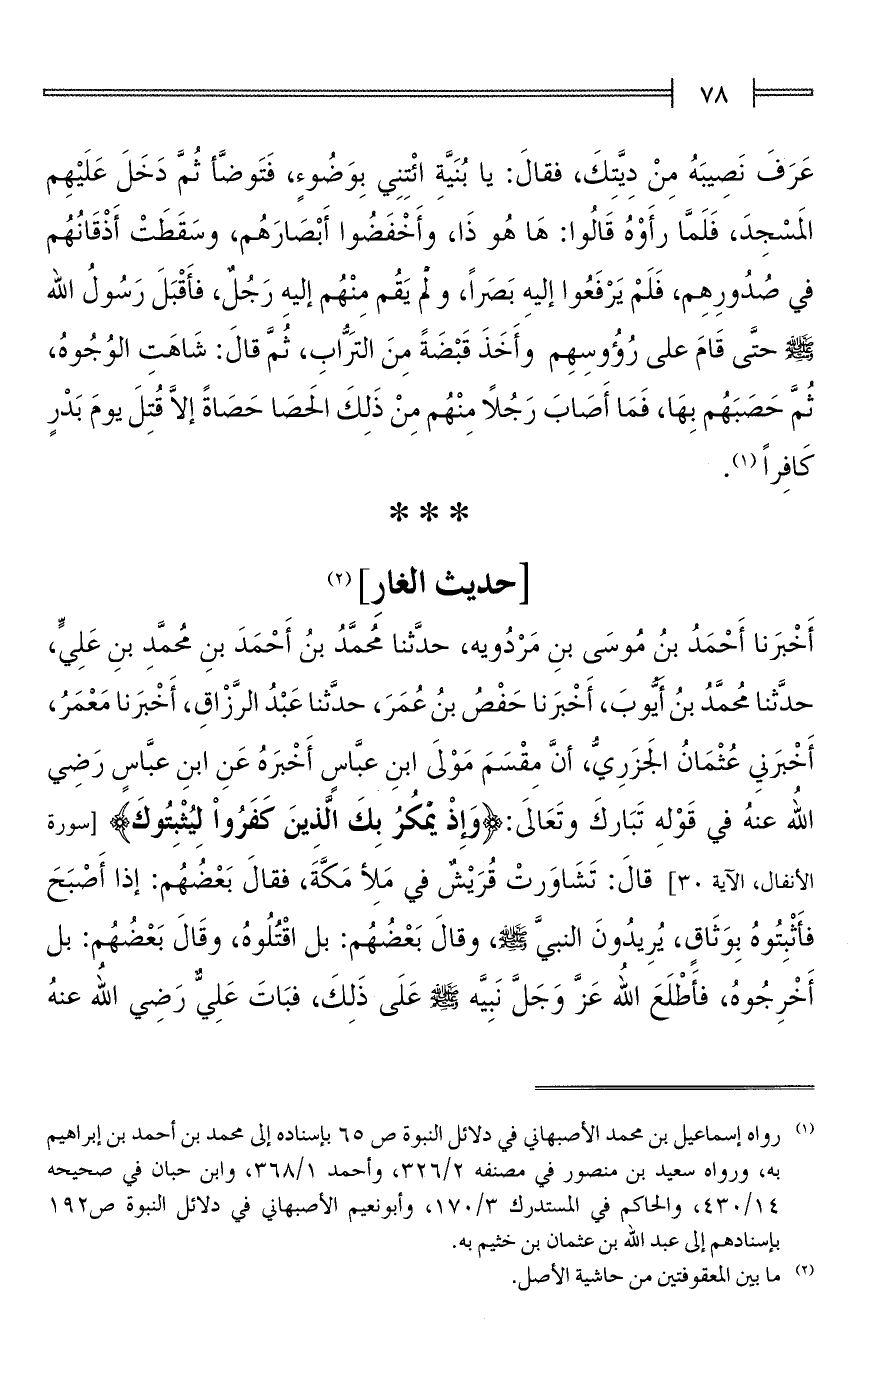 ٧٨
عَرَفَ نَصِيبَهُ مِنْ دِيَّتِكَ، فقالَ: يا بُنَيَّةِ ائْتِنِي بِوَضُوءٍ، فَتَوضَّأ ثُمَّ دَخَلَ عَلَيْهِم
المَسْجِدَ، فَلَمَّا رأَوْهُ قَالُوا: هَا هُو ذَا، وأَخْفَضُوا أَبْصَارَهُم، وسَقَطَتْ أَذْقَانُهُم
في صُدُورِهِم، فَلَمْ يَرْفَعُوا إليهِ بَصَراً، و لَمْ يَقُم مِنْهُم إليهِ رَجُلٌ، فأَقْبَلَ رَسُولُ الله
ﷺ حتَّى قَامَ على رُؤُوسِهِم وأَخَذَ قَبْضَةً مِنَ التُرَّاب، ثُمَّ قالَ: شَاهَتِ الوُجُوهُ،
ثُمَّ حَصَبَهُم بِهَا، فَمَا أَصَابَ رَجُلاً مِنْهُم مِنْ ذَلِكَ الحَصَا حَصَاةً إلاَّ قُتِلَ يومَ بَدْرٍ
كَافِراً (١).
* * *
[حديث الغارِ] (٢)
أَخْبَرَنا أَحْمَدُ بنُ مُوسَى بنِ مَرْدُويه، حدَّثنا مُحمَّدُ بنُ أَحْمَدَ بنِ مُحمَّدِ بنِ عَلِيٍّ،
حدَّثنا مُحمَّدُ بنُ أَيُّوبَ، أَخْبَرَنا حَفْصُ بنُ عُمَرَ، حدَّثنا عَبْدُ الرَّزْاقِ، أَخْبَرَنا مَعْمَرُ،
أَخْبَرَنِي عُثْمَانُ الجَزَرِيُّ، أنَّ مِقْسَمَ مَوْلَى ابنِ عبَّاسٍ أَخْبَرَهُ عَنِ ابنِ عبَّاسٍ رَضِي
اللهُ عنهُ في قَوْلهِ تَبَاركَ وتَعَالَى: ﴿وَإِذْ يَمْكُرُ بِكَ الَّذِينَ كَفَرُواْ لِيُثْبِتُوكَ﴾ [سورة
الأنفال، الآية ٣٠] قالَ: تَشَاوَرتْ قُرَيْشٌ في مَلأ مَكَّةَ، فقالَ بَعْضُهُم: إذا أَصْبَحَ
فأَثْبِتُوهُ بِوَثَاقٍ، يُرِيدُونَ النبيَّ ﷺ، وقالَ بَعْضُهُم: بل اقْتُلُوهُ، وقَالَ بَعْضُهُم: بل
أَخْرِجُوهُ، فأَطْلَعَ اللهُ عَزَّ وَجَلَّ نَبِيَّه ﷺ عَلَى ذَلِكَ، فبَاتَ عَلِيٌّ رَضِي اللهُ عنهُ
(١) رواه إسماعيل بن محمد الأصبهاني في دلائل النبوة ص ٦٥ بإسناده إلى محمد بن أحمد بن إبراهيم
به، ورواه سعيد بن منصور في مصنفه ٣٢٦/٢، وأحمد ٣٦٨/١، وابن حبان في صحيحه
٤٣٠/١٤، والحاكم في المستدرك ١٧٠/٣، وأبونعيم الأصبهاني في دلائل النبوة ص١٩٢
بإسنادهم إلى عبد الله بن عثمان بن خثيم به.
(٢) ما بين المعقوفتين من حاشية الأصل.